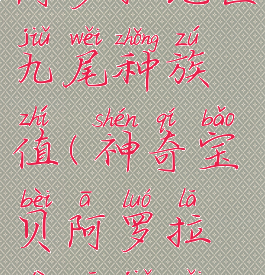 jiǔ wěi zhǒng zú
九尾种族
zhí shén qí bǎo
值(神奇宝
bèi ā luó lā
贝阿罗拉